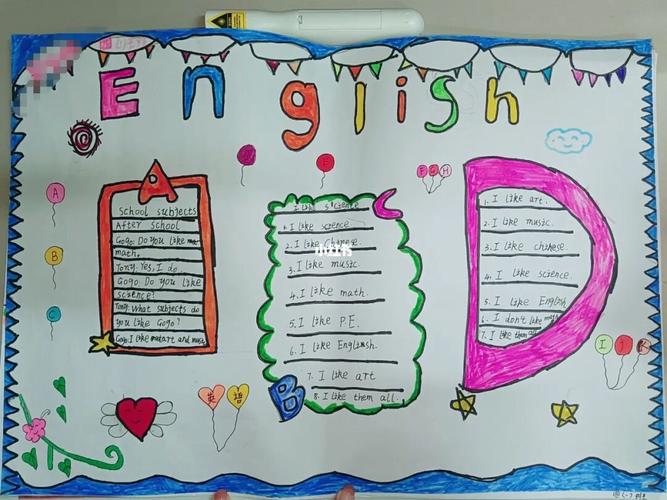 English
School subjects
After school
Gogo: Do you like
math,
Tony: Yes, I do
Gogo Do you like
science?
Tony: What subjects do
you like Gogo?
Gogo: I like art and music
I like science
1. I like science.
2. I like Chinese.
3. I like music.
4. I like math.
5. I like P.E.
6. I like English.
7. I like art
8. I like them all.
1. I like art.
2. I like music.
3. I like chinese.
4. I like science.
5. I like English
6. I don't like
7. I like them
A
B
C
E
F
G
H
I
J
K
B
英语
小红书